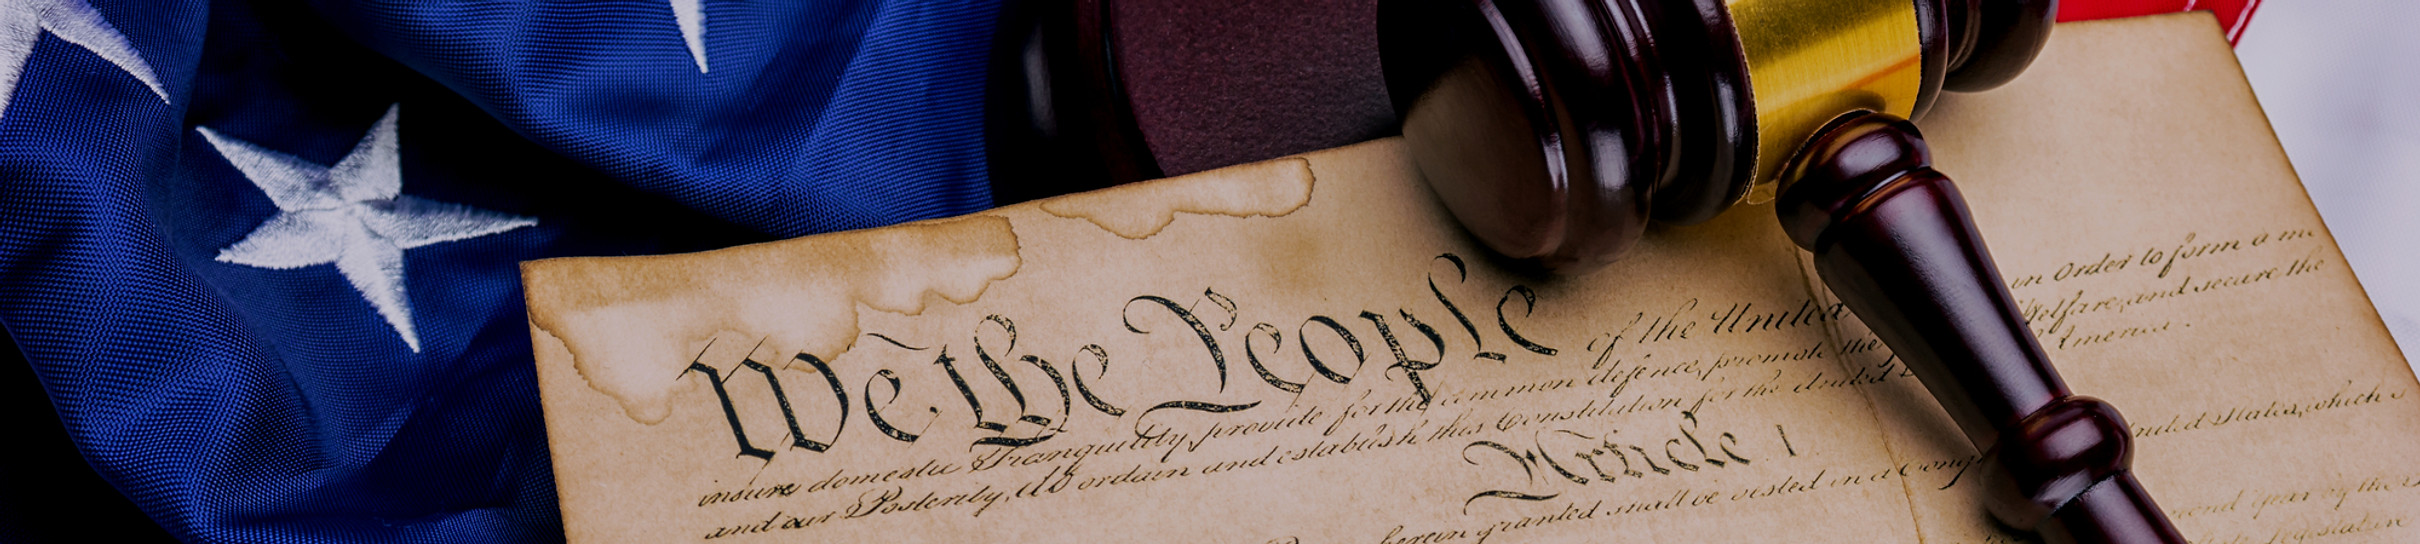 We the People of the United in Order to form a
insure domestic Tranquility, provide for the common defence, promote the Welfare, and secure the
and our Posterity, do ordain and establish this Constitution for the United America.
Article 1
herein granted shall be vested in a United States, which
Year of the
Legislature